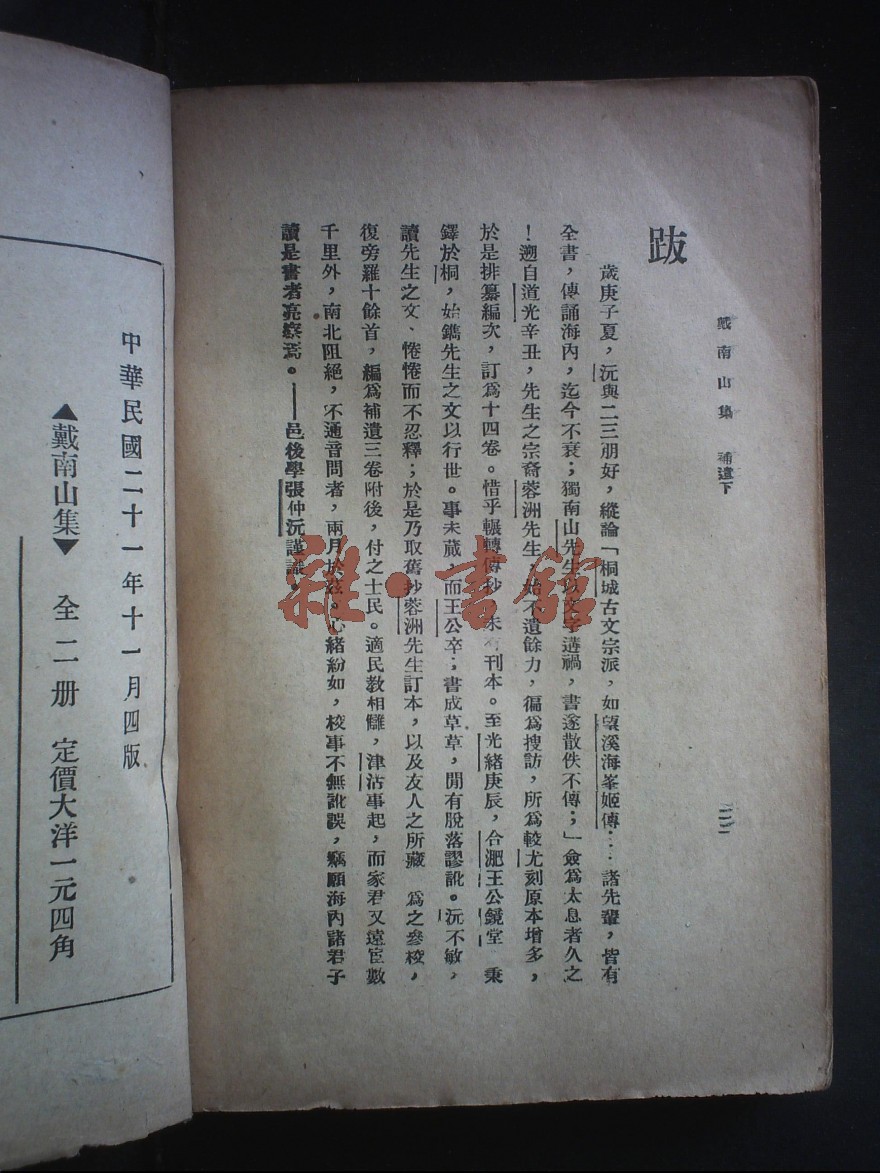 戴南山集　補遺下
二二
跋
歲庚子夏，沅與二三朋好，縱論「桐城古文宗派，如望溪海峯姬傳……諸先輩，皆有
全書，傳誦海內，迄今不衰；獨南山先生以文字遘禍，書遂散佚不傳；」僉爲太息者久之
！溯自道光辛丑，先生之宗裔蓉洲先生，始不遺餘力，徧爲搜訪，所爲較尤刻原本增多，
於是排纂編次，訂爲十四卷。惜乎輾轉傳抄，未有刊本。至光緒庚辰，合淝王公鏡堂　秉
鐸於桐，始鐫先生之文以行世。事未蕆，而王公卒；書成草草，閒有脫落謬訛。沅不敏，
讀先生之文、惓惓而不忍釋；於是乃取舊抄蓉洲先生訂本，以及友人之所藏　爲之參校，
復旁羅十餘首，編爲補遺三卷附後，付之士民。適民教相讎，津沽事起，而家君又遠宦數
千里外，南北阻絕，不通音問者，兩月於茲。心緒紛如，校事不無訛誤，竊願海內諸君子
讀是書者亮察焉。——邑後學張仲沅謹識。
中華民國二十一年十一月四版
▲戴南山集▼　全二册　定價大洋一元四角
雜·書館